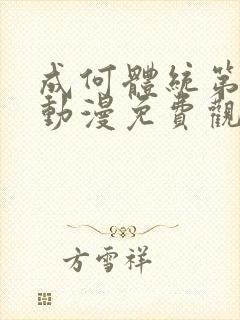 成何體統第
動漫免費觀
方雪祥